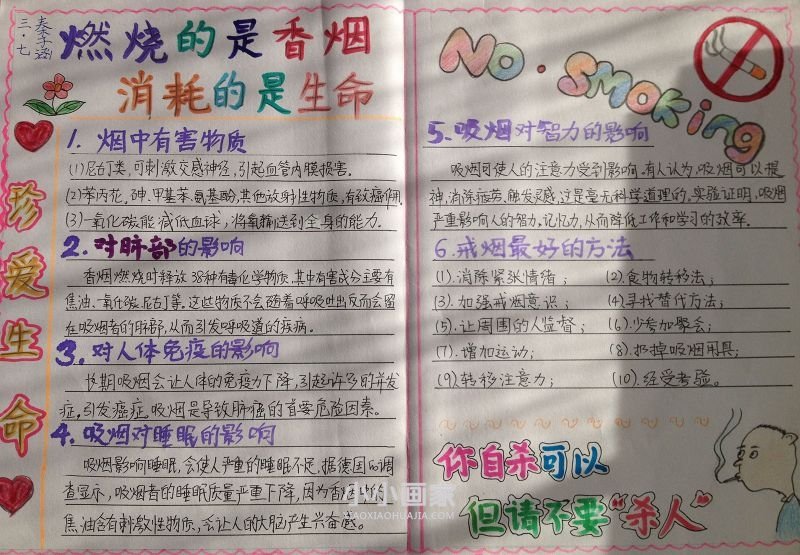 三·七
秦子涵
燃烧的是香烟
消耗的是生命
珍爱生命
1. 烟中有害物质
(1)尼古丁类,可刺激交感神经,引起血管内膜损害。
(2)苯丙花、砷、甲基苯、氨基酚,其他放射性物质,有致癌作用.
(3)一氧化碳能减低血球,将氧输送到全身的能力.
2. 对肺部的影响
香烟燃烧时释放38种有毒化学物质,其中有害成分主要有
焦油、一氧化碳、尼古丁等。这些物质不会随着呼吸吐出反而会留
在吸烟者的肺部,从而引发呼吸道的疾病。
3. 对人体免疫的影响
长期吸烟会让人体的免疫力下降,引起许多的并发
症,引发癌症。吸烟是导致肺癌的首要危险因素.
4. 吸烟对睡眠的影响
吸烟影响睡眠,会使人严重的睡眠不足,据德国的调
查显示,吸烟者的睡眠质量严重下降,因为香
焦油含有刺激性物质,会让人的大脑产生兴奋感。
No·smoking
5. 吸烟对智力的影响
吸烟可使人的注意力受到影响,有人认为,吸烟可以提
神、消除疲劳、触发灵感,这是毫无科学道理的,实验证明,吸烟
严重影响人的智力、记忆力,从而降低工作和学习的效率.
6. 戒烟最好的方法
(1).消除紧张情绪; (2).食物转移法;
(3).加强戒烟意识; (4).寻找替代方法;
(5).让周围的人监督; (6).少参加聚会;
(7).增加运动; (8).扔掉吸烟用具;
(9).转移注意力; (10).经受考验。
你自杀可以
但请不要“杀人”
小小画家
XIAOXIAOHUAJIA.COM